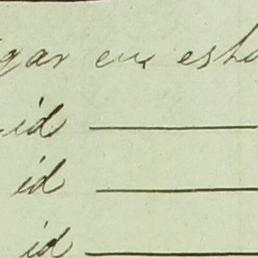 gar en esta
id
id
id